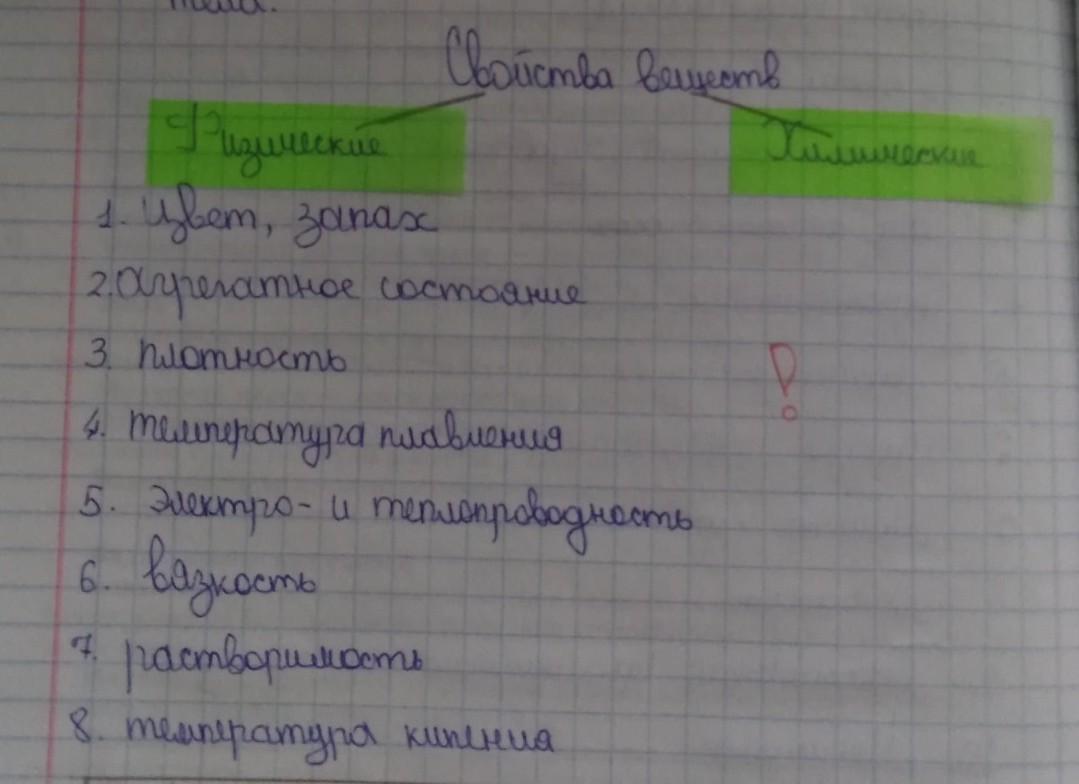 тела.
Свойства веществ
Физические Химические
1. Цвет, запах
2. Агрегатное состояние
3. плотность
!
4. температура плавления
5. электро- и теплопроводность
6. вязкость
7. растворимость
8. температура кипения